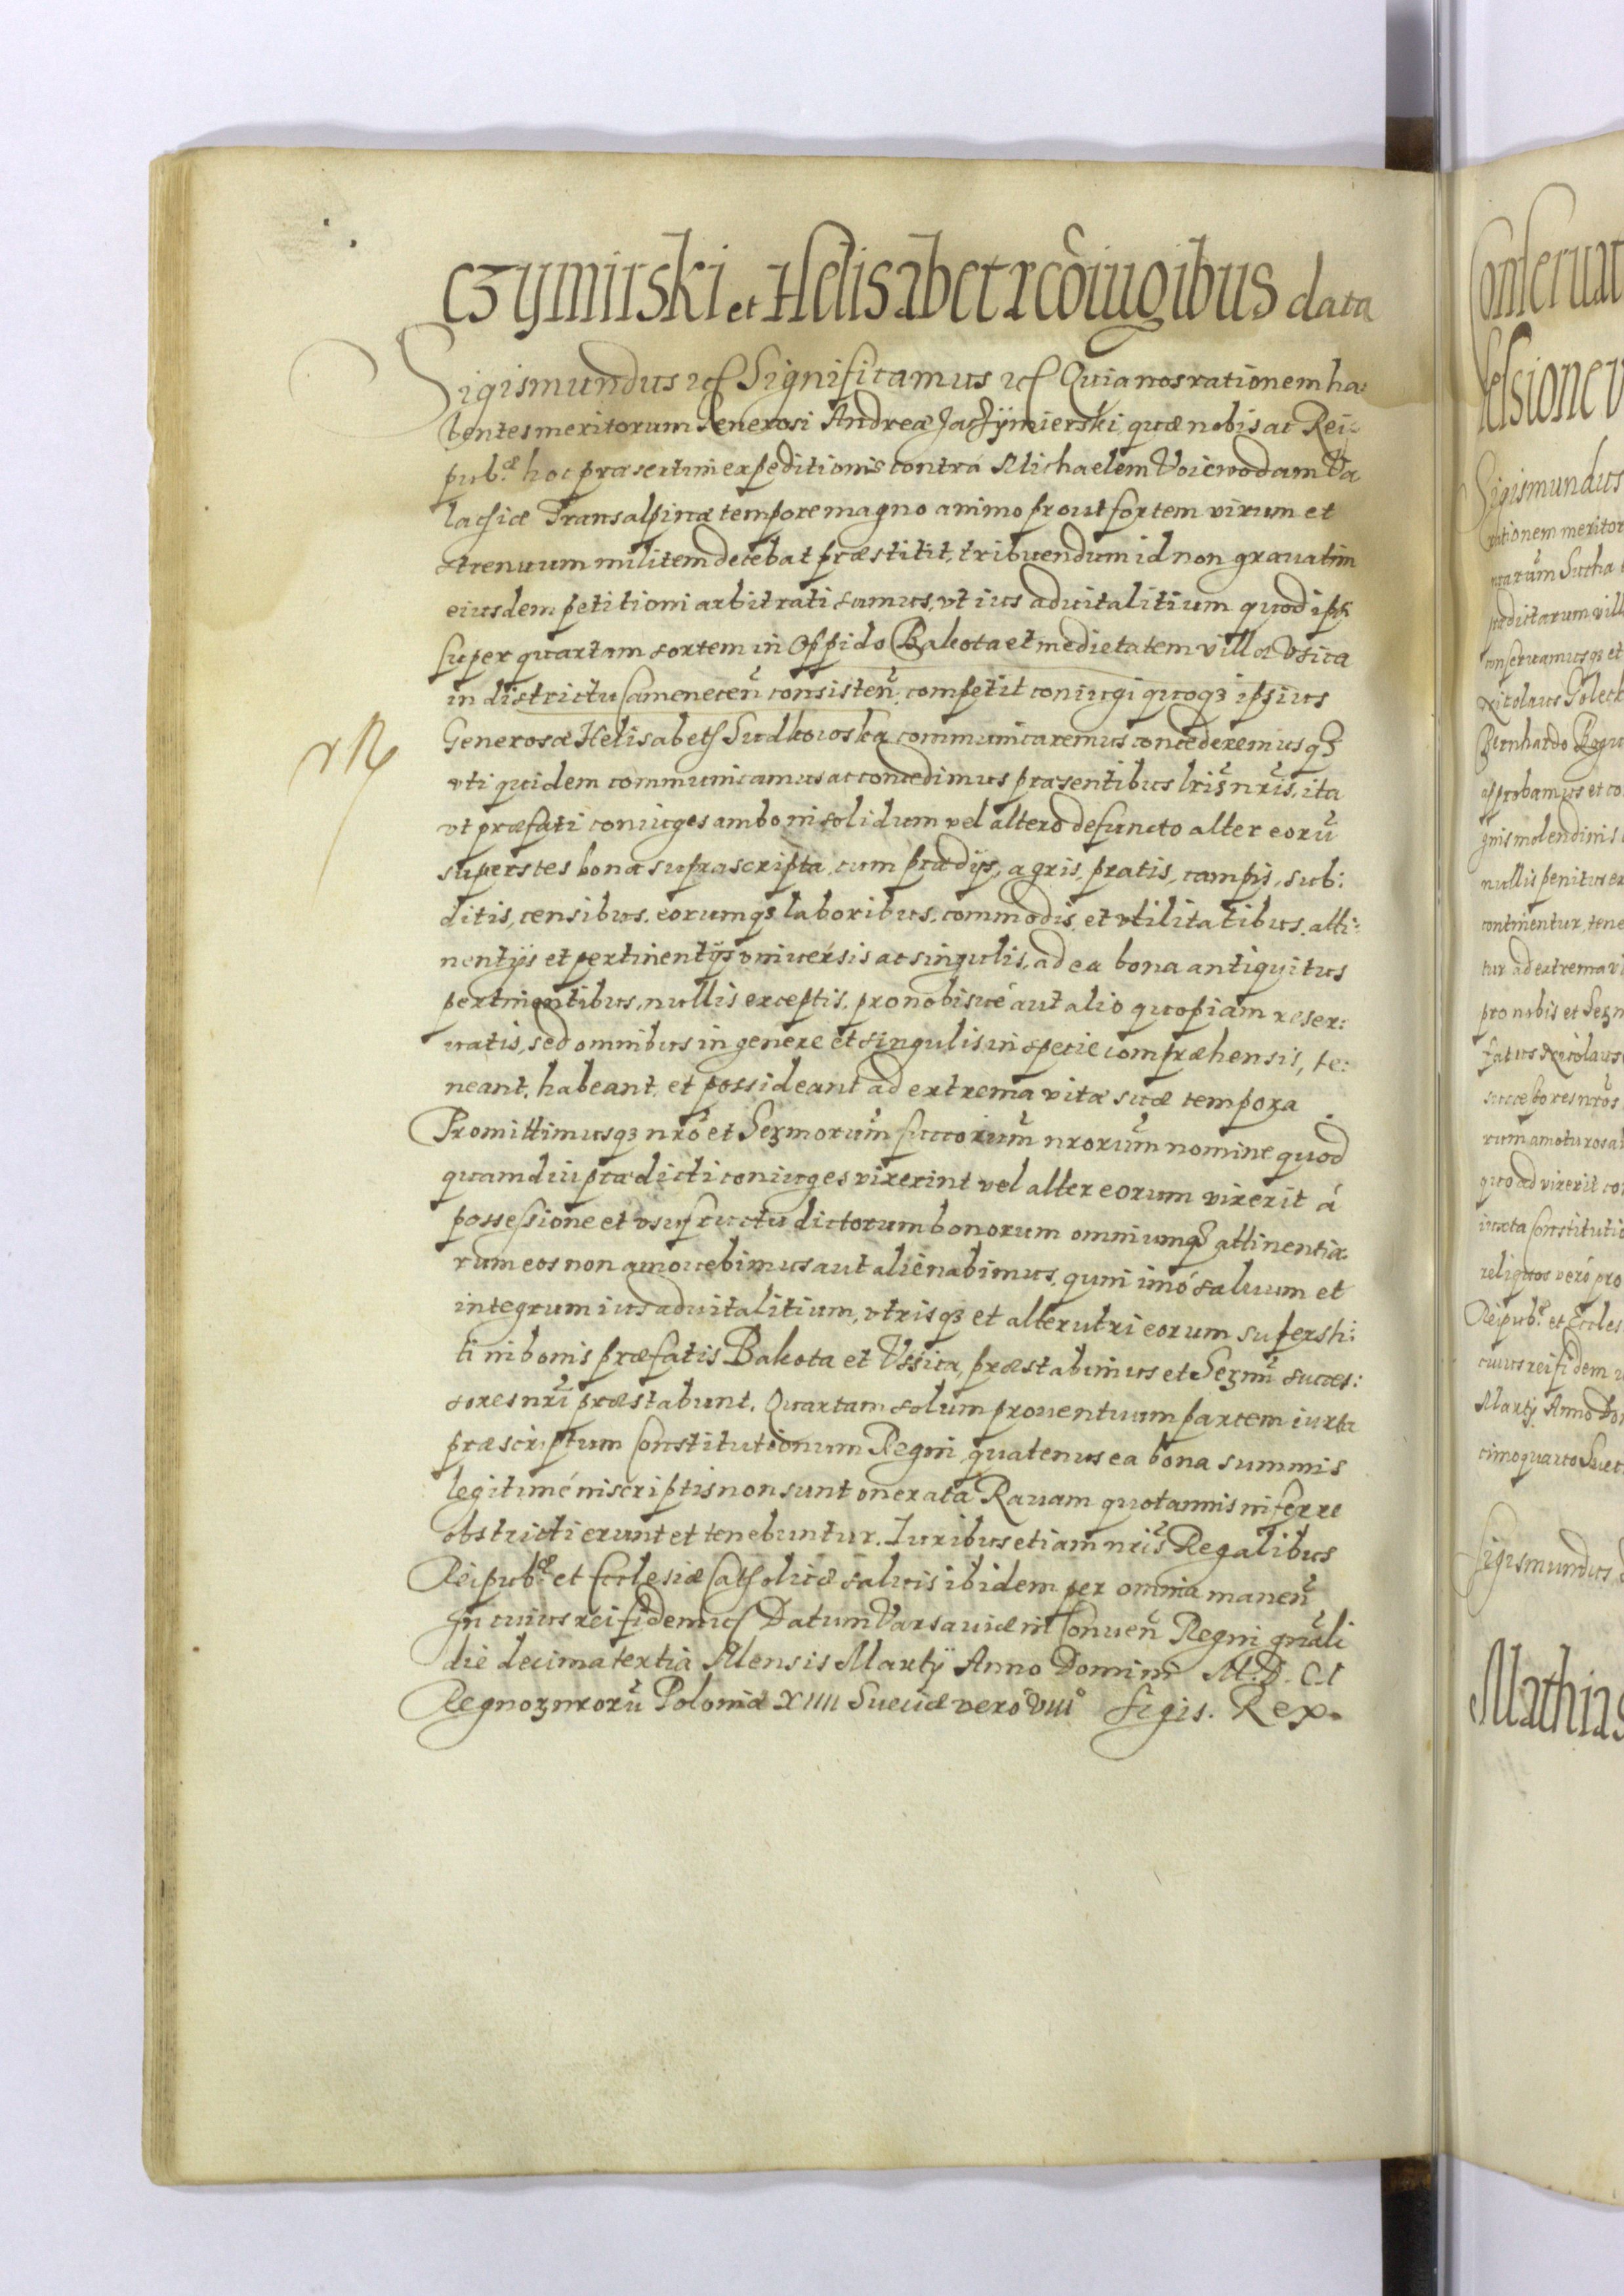 czymirski et Helisabetæ cõiugibus data
Sigismundus etc Significamus etc Quia nos rationem ha:
bentes meritorum Generosi Andreæ Jaczÿmierski, quæ nobis ac Rei:
pub.æ hoc præsertim expeditionis contrá Michaelem Voiewodam Va
lachiæ Transalpinæ tempore magno animo prout fortem virum et
strenuum militem decebat præstitit, tribuendum id non grauatim
eiusdem petitioni arbitrati sumus, vt ius aduitalitium quod ipsi
super quartam sortem in Oppido Bakota et medietatem villæ Vsica
in districtu Camenecen̄ consisten̄. competit coniugi quoq3 ipsius
Generosæ Helisabeth Sudkowska communicaremus concederemusq3
vti quidem communicamus ac concedimus præsentibus lris nris, ita
vt præfati coniuges ambo in solidum vel altero defuncto alter eorū
superstes bona suprascripta, cum prædijs, agris, pratis, campis, sub:
ditis, censibus, eorumq3 laboribus, commodis, et vtilitatibus, atti:
nentijs et pertinentijs vniuersis ac singulis, ad ea bona antiquitus
pertinentibus, nullis exceptis, pro nobisué aut alio quopiam reser:
uatis, sed omnibus in genere et singulis in specie compræhensis, te:
neant, habeant, et possideant ad extrema vitæ suæ tempora
Promittimusq3 nrõ et Sermorum̄ succorum̄ nrorum̄ nomine quod
quamdiu prædicti coniuges vixerint vel alter eorum vixerit á
possessione et vsufructu dictorum bonorum omniumq3 attinentia
rum eos non amouebimus aut alienabimus, quin imó saluum et
integrum ius aduitalitium, vtrisq3 et alterutri eorum supersti:
ti in bonis præfatis Bakota et Vssica, præstabimus et Sermi succes:
sores nri præstabunt. Quartam solum prouentuum partem iuxta
præscriptum Constitutionum Regni, quatenus ea bona summis
legitimé inscriptis non sunt onerata Rauam quotannis inferre
obstricti erunt et tenebuntur. Iuribus etiam nris Regalibus
Reipub.æ et Ecclesiæ Catholicæ saluis ibidem per omnia manen̄
In cuius rei fidem etc Datum Varsauiæ in Conuen̄ Regni gnali
die decima tertia Mensis Martÿ Anno Domini M.D.CI
Regnor3 nrorū Poloniæ XIIII Sueciæ veró VIII° Sigis. Rex.
Conseruat
Sigismundus
rationem meritor
prædictarum vill
conseruamusq3 et
Nicolaus Goleck
approbamus et co
nullis penitus ex
continentur, tene
tur ad extrema vi
quoad vixerit co
iuxta Constitutio
reliquos veró pro
Reipub.æ et Eccles
cuius rei fidem
Martÿ Anno Do
cimo quarto Suec
Sigismundus
Mathias